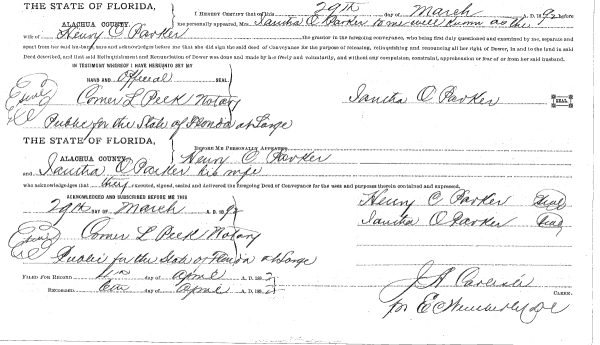 THE STATE OF FLORIDA,
ALACHUA COUNTY
I HEREBY CERTIFY that on this 29th day of March A. D. 1892 before
me personally appeared, Mrs. Iantha O Parker to me well known as the
wife of Henry C. Parker the grantor in the foregoing conveyance, who being first duly questioned and examined by me, separate and
apart from her said husband, says and acknowledges before me that she did sign the said deed of Conveyance for the purpose of releasing, relinquishing and renouncing all her right of Dower, in and to the land in said
Deed described, and that said Relinquishment and Renunciation of Dower was done and made by her freely and voluntarily, and without any compulsion, constraint, apprehension or fear of or from her said husband.
IN TESTIMONY WHEREOF I HAVE HEREUNTO SET MY
HAND AND Official SEAL.
Comer L Peek Notary
Iantha O Parker SEAL.
Public for the State of Florida at Large
THE STATE OF FLORIDA,
ALACHUA COUNTY
BEFORE ME PERSONALLY APPEARED Henry C Parker
and Iantha O Parker his wife
who acknowledges that they executed, signed, sealed and delivered the foregoing Deed of Conveyance for the uses and purposes therein contained and expressed.
ACKNOWLEDGED AND SUBSCRIBED BEFORE ME THIS
Henry C Parker Seal
29th DAY OF March A. D. 1892
Iantha O Parker Seal
Seal
Comer L Peek Notary
Public for the State of Florida at Large
FILED FOR RECORD day of April A. D. 1892
RECORDED 6th day of April A. D. 1892
J A Carlisle CLERK.
pr E C Wimberly DC